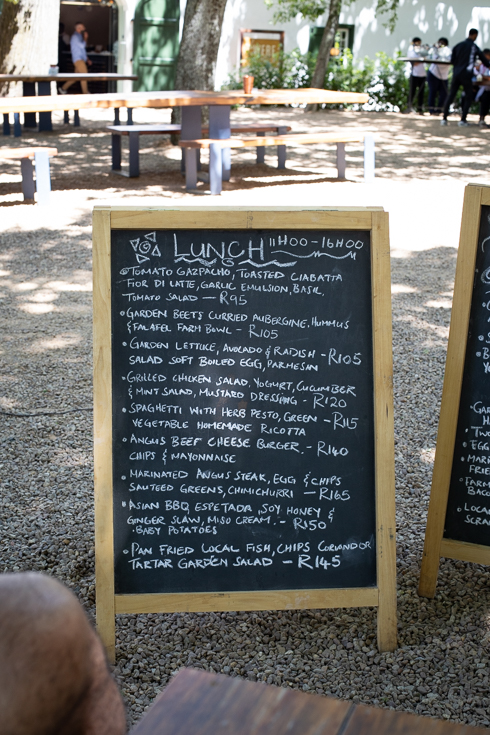 LUNCH 11H00-16H00
TOMATO GAZPACHO, TOASTED CIABATTA
FIOR DI LATTE, GARLIC EMULSION, BASIL,
TOMATO SALAD — R95
GARDEN BEETS CURRIED AUBERGINE, HUMMUS
& FALAFEL FARM BOWL - R105
GARDEN LETTUCE, AVOLADO & RADISH - R105
SALAD SOFT BOILED EGG, PARMESAN
GRILLED CHICKEN SALAD, YOGURT, CUCUMBER
& MINT SALAD, MUSTARD DRESSING - R120
SPAGHETTI WITH HERB PESTO, GREEN - R115
VEGETABLE HOMEMADE RICOTTA
ANGUS BEEF CHEESE BURGER. - R140
CHIPS & MAYONNAISE
MARINATED ANGUS STEAK, EGG & CHIPS
SAUTEED GREENS, CHIMICHURRI — R165
ASIAN BBQ ESPETADA, SOY HONEY &
GINGER SLAW, MISO CREAM. - R150
BABY POTATOES
PAN FRIED LOCAL FISH, CHIPS CORIANDER
TARTAR GARDEN SALAD — R145